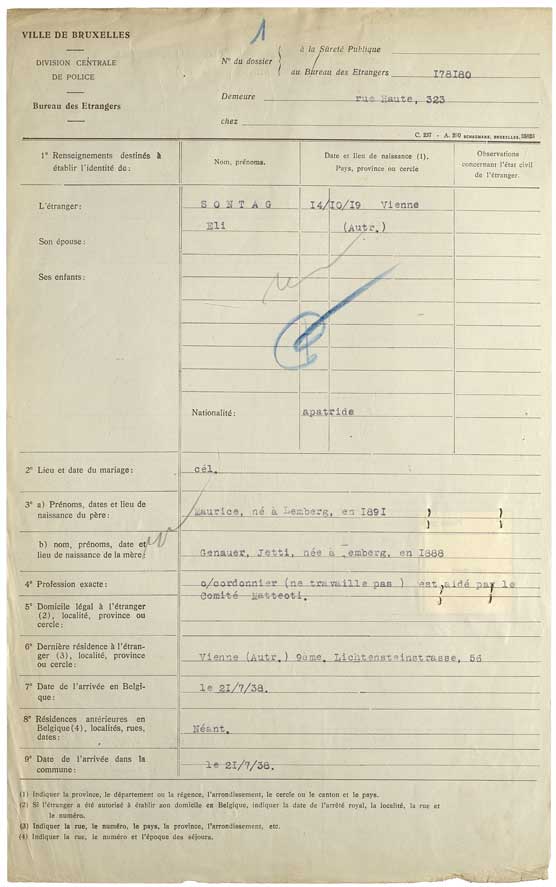 VILLE DE BRUXELLES
DIVISION CENTRALE
DE POLICE
Bureau des Etrangers
1
N° du dossier
à la Sûreté Publique
au Bureau des Etrangers 178180
Demeure rue Haute, 323
chez
C. 237 - A. 290 SCHAUMANS, BRUXELLES,
1° Renseignements destinés à
établir l'identité de:
Nom, prénoms.
Date et lieu de naissance (1).
Pays, province ou cercle
Observations
concernant l'état civil
de l'étranger.
L'étranger: SONTAG 14/10/19 Vienne
Eli (Autr.)
Son épouse:
Ses enfants:
Nationalité: apatride
2° Lieu et date du mariage: cél.
3° a) Prénoms, dates et lieu de
naissance du père: Maurice, né à Lemberg, en 1891 )
b) nom, prénoms, date et
lieu de naissance de la mère: Genauer, Jetti, née à Lemberg, en 1888
4° Profession exacte: o/cordonnier (ne travaille pas ) est aidé par le
Comité Matteoti.
5° Domicile légal à l'étranger
(2), localité, province ou
cercle:
6° Dernière résidence à l'étran-
ger (3), localité, province
ou cercle: Vienne (Autr.) 9ème. Lichtensteinstrasse, 56
7° Date de l'arrivée en Belgi-
que: le 21/7/38.
8° Résidences antérieures en
Belgique (4), localités, rues,
dates: Néant.
9° Date de l'arrivée dans la
commune: le 21/7/38.
(1) Indiquer la province, le département ou la régence, l'arrondissement, le cercle ou le canton et le pays.
(2) Si l'étranger a été autorisé à établir son domicile en Belgique, indiquer la date de l'arrêté royal, la localité, la rue et
le numéro.
(3) Indiquer la rue, le numéro, le pays, la province, l'arrondissement, etc.
(4) Indiquer la rue, le numéro et l'époque des séjours.